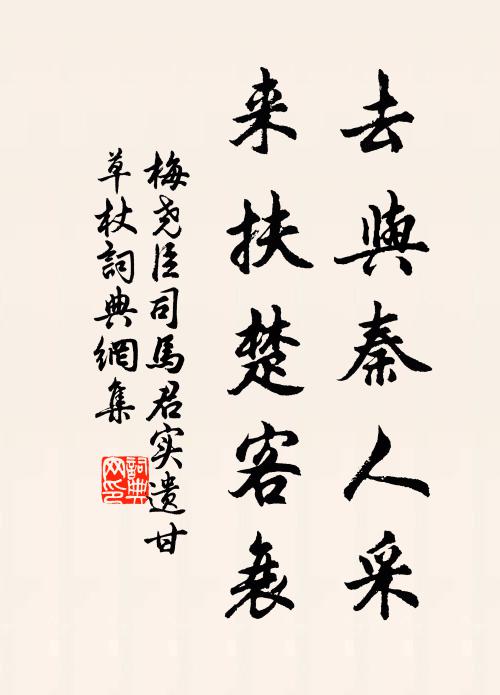 去與秦人采
来扶楚客衰
梅尧臣司馬君实遗甘
草杖詞典網集
詞典
网印